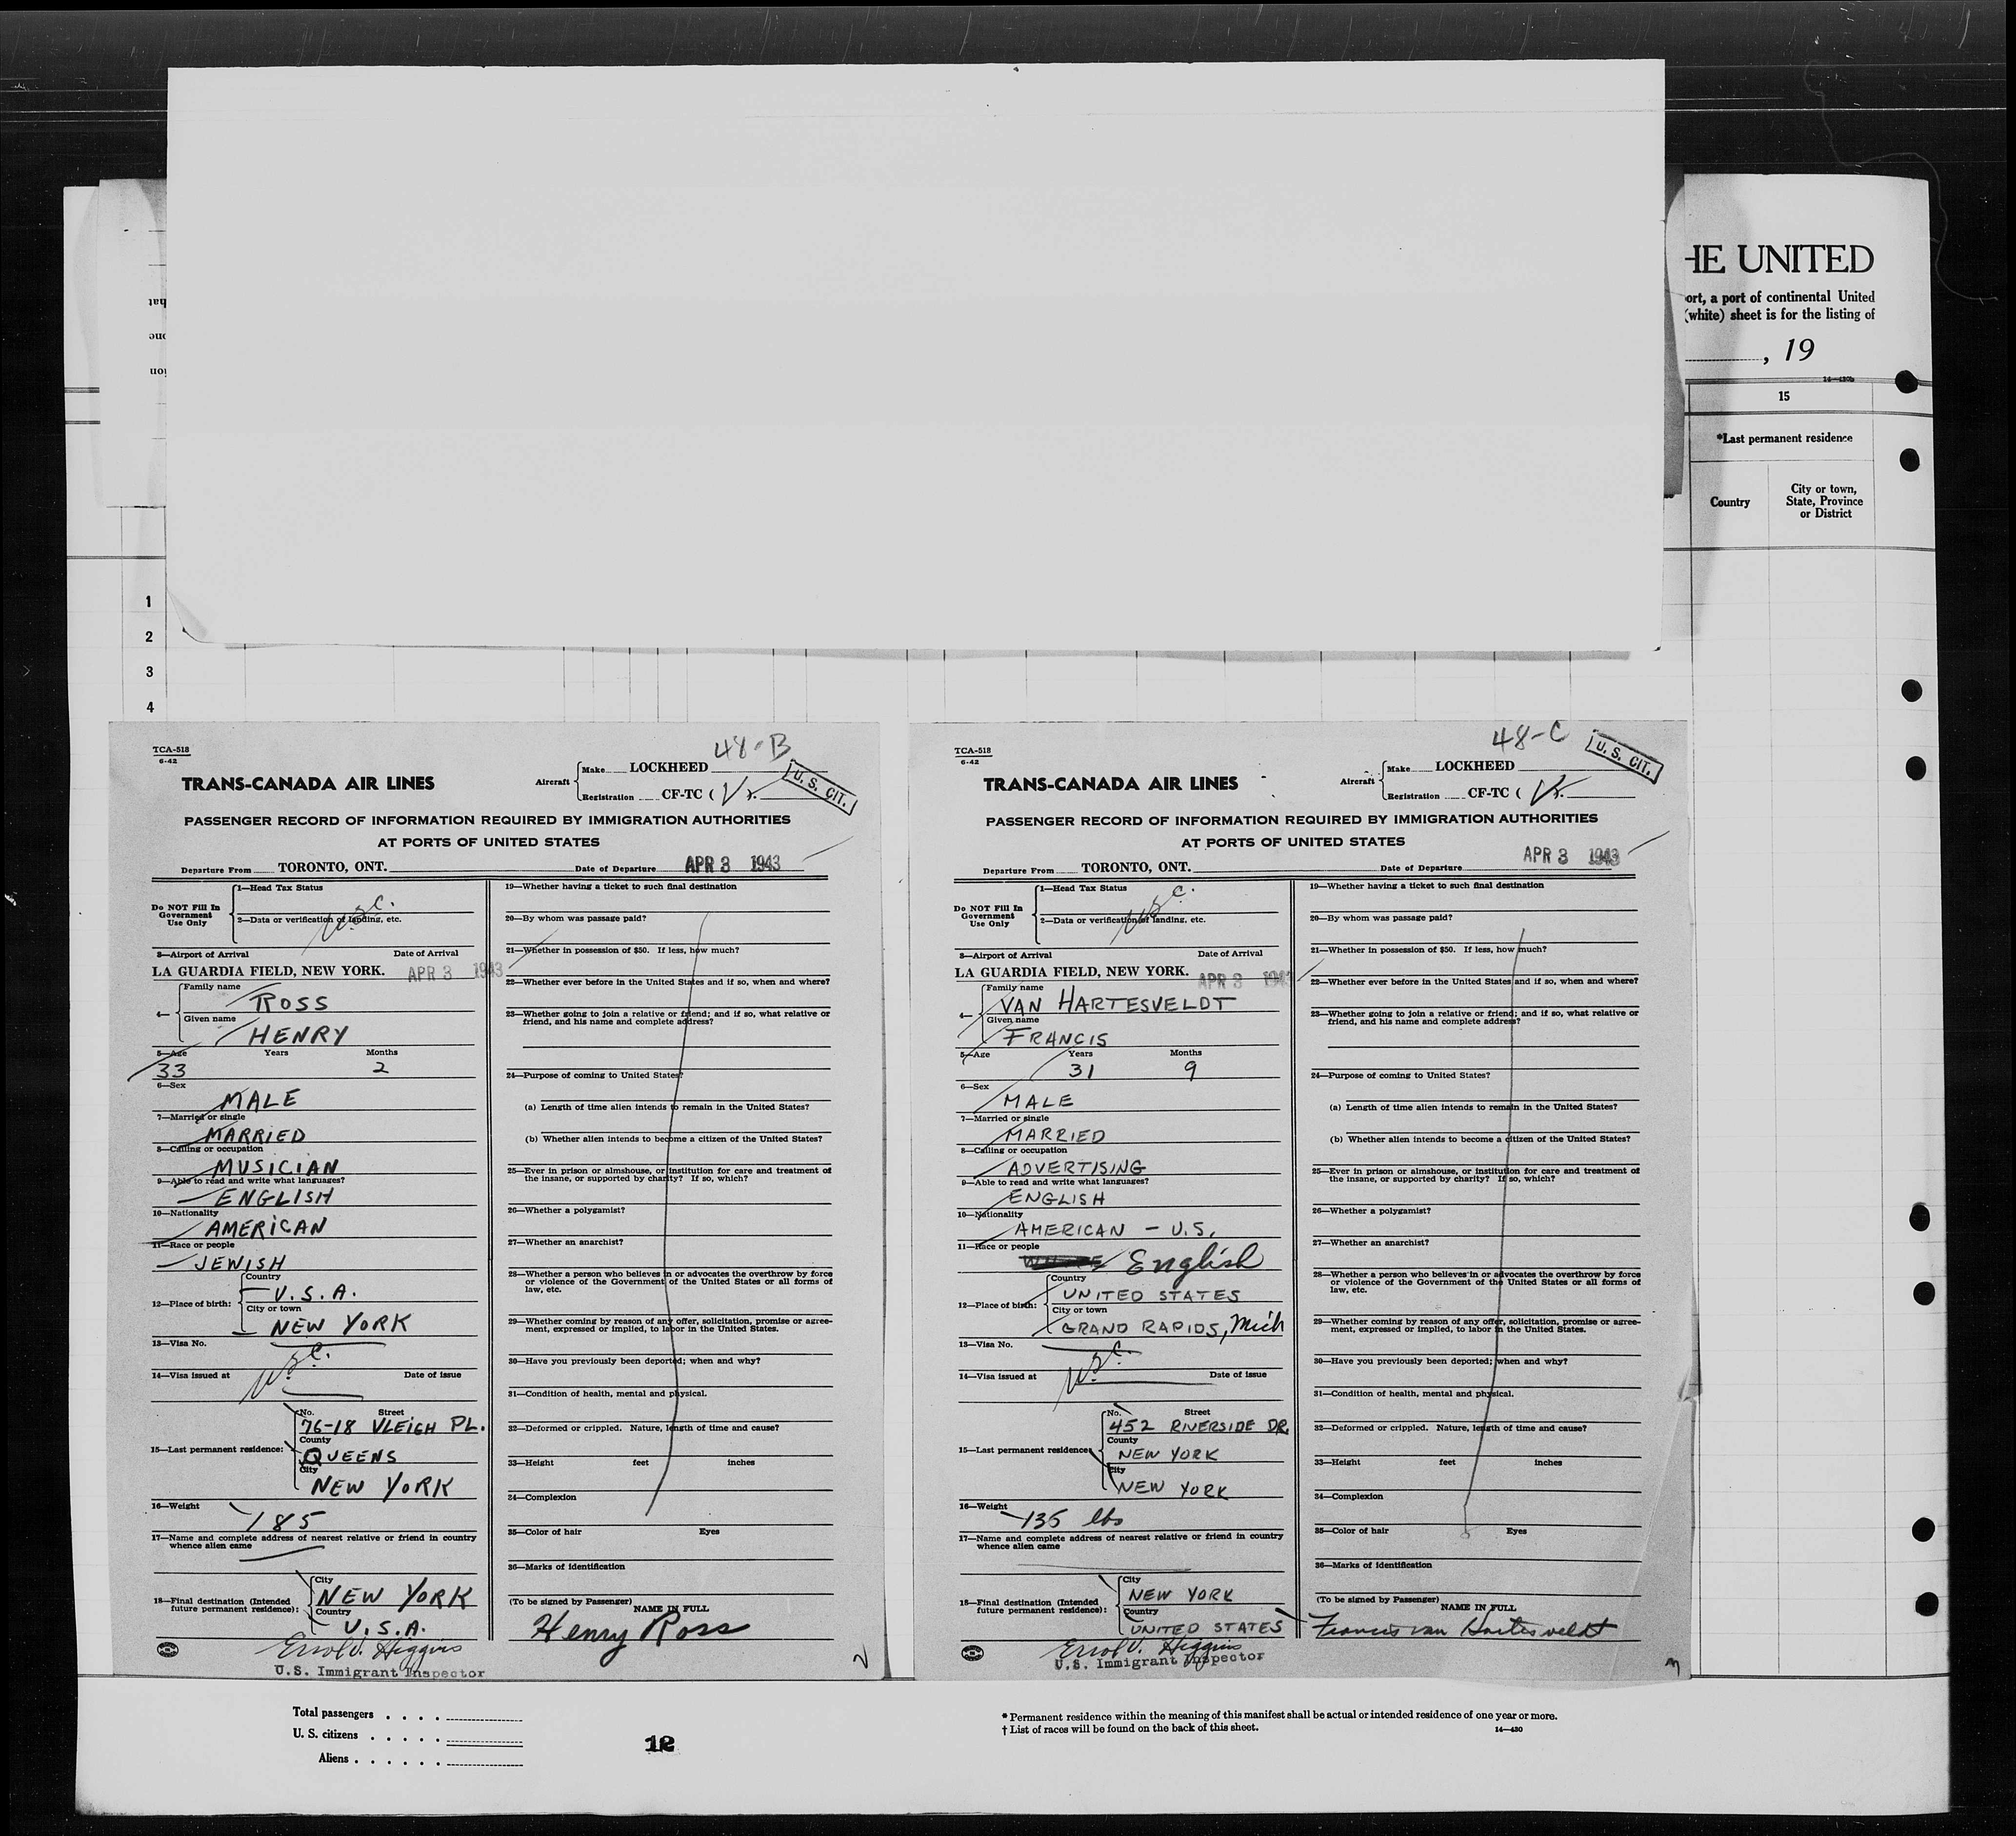 HE UNITED
ort, a port of continental United
(white) sheet is for the listing of
, 19
14—430b
15
*Last permanent residence
Country
City or town, State, Province or District
1
2
3
4
48-B
TCA-518
6-42
TRANS-CANADA AIR LINES
Aircraft
Make LOCKHEED
Registration CF-TC (
U. S. CIT.
PASSENGER RECORD OF INFORMATION REQUIRED BY IMMIGRATION AUTHORITIES
AT PORTS OF UNITED STATES
Departure From TORONTO, ONT. Date of Departure APR 3 1943
Do NOT Fill In Government Use Only
1—Head Tax Status
2—Data or verification of landing, etc.
USC.
3—Airport of Arrival Date of Arrival
LA GUARDIA FIELD, NEW YORK. APR 3 1943
4—
Family name
ROSS
Given name
HENRY
5—Age Years Months
33 2
6—Sex
MALE
7—Married or single
MARRIED
8—Calling or occupation
MUSICIAN
9—Able to read and write what languages?
ENGLISH
10—Nationality
AMERICAN
11—Race or people
JEWISH
12—Place of birth:
Country
U.S.A.
City or town
NEW YORK
13—Visa No.
USC.
14—Visa issued at Date of issue
15—Last permanent residence:
No. Street
76-18 VLEIGH PL.
County
QUEENS
City
NEW YORK
16—Weight
185
17—Name and complete address of nearest relative or friend in country
whence alien came
18—Final destination (Intended
future permanent residence):
City
NEW YORK
Country
U.S.A.
Errol V. Higgins
U.S. Immigrant Inspector
19—Whether having a ticket to such final destination
20—By whom was passage paid?
21—Whether in possession of $50. If less, how much?
22—Whether ever before in the United States and if so, when and where?
23—Whether going to join a relative or friend; and if so, what relative or
friend, and his name and complete address?
24—Purpose of coming to United States?
(a) Length of time alien intends to remain in the United States?
(b) Whether alien intends to become a citizen of the United States?
25—Ever in prison or almshouse, or institution for care and treatment of
the insane, or supported by charity? If so, which?
26—Whether a polygamist?
27—Whether an anarchist?
28—Whether a person who believes in or advocates the overthrow by force
or violence of the Government of the United States or all forms of
law, etc.
29—Whether coming by reason of any offer, solicitation, promise or agree-
ment, expressed or implied, to labor in the United States.
30—Have you previously been deported; when and why?
31—Condition of health, mental and physical.
32—Deformed or crippled. Nature, length of time and cause?
33—Height feet inches
34—Complexion
35—Color of hair Eyes
36—Marks of identification
(To be signed by Passenger)
NAME IN FULL
Henry Ross
2
48-C
TCA-518
6-42
TRANS-CANADA AIR LINES
Aircraft
Make LOCKHEED
Registration CF-TC (
U. S. CIT.
PASSENGER RECORD OF INFORMATION REQUIRED BY IMMIGRATION AUTHORITIES
AT PORTS OF UNITED STATES
Departure From TORONTO, ONT. Date of Departure APR 3 1943
Do NOT Fill In Government Use Only
1—Head Tax Status
2—Data or verification of landing, etc.
USC.
3—Airport of Arrival Date of Arrival
LA GUARDIA FIELD, NEW YORK. APR 3 1943
4—
Family name
VAN HARTESVELDT
Given name
FRANCIS
5—Age Years Months
31 9
6—Sex
MALE
7—Married or single
MARRIED
8—Calling or occupation
ADVERTISING
9—Able to read and write what languages?
ENGLISH
10—Nationality
AMERICAN — U.S.
11—Race or people
English
12—Place of birth:
Country
UNITED STATES
City or town
GRAND RAPIDS, Mich
13—Visa No.
USC.
14—Visa issued at Date of issue
15—Last permanent residence:
No. Street
452 RIVERSIDE DR.
County
NEW YORK
City
NEW YORK
16—Weight
135 lbs
17—Name and complete address of nearest relative or friend in country
whence alien came
18—Final destination (Intended
future permanent residence):
City
NEW YORK
Country
UNITED STATES
Errol V. Higgins
U.S. Immigrant Inspector
19—Whether having a ticket to such final destination
20—By whom was passage paid?
21—Whether in possession of $50. If less, how much?
22—Whether ever before in the United States and if so, when and where?
23—Whether going to join a relative or friend; and if so, what relative or
friend, and his name and complete address?
24—Purpose of coming to United States?
(a) Length of time alien intends to remain in the United States?
(b) Whether alien intends to become a citizen of the United States?
25—Ever in prison or almshouse, or institution for care and treatment of
the insane, or supported by charity? If so, which?
26—Whether a polygamist?
27—Whether an anarchist?
28—Whether a person who believes in or advocates the overthrow by force
or violence of the Government of the United States or all forms of
law, etc.
29—Whether coming by reason of any offer, solicitation, promise or agree-
ment, expressed or implied, to labor in the United States.
30—Have you previously been deported; when and why?
31—Condition of health, mental and physical.
32—Deformed or crippled. Nature, length of time and cause?
33—Height feet inches
34—Complexion
35—Color of hair Eyes
36—Marks of identification
(To be signed by Passenger)
NAME IN FULL
Francis van Hartesveldt
3
Total passengers . . . .
U. S. citizens . . . . .
Aliens . . . . . .
12
* Permanent residence within the meaning of this manifest shall be actual or intended residence of one year or more.
† List of races will be found on the back of this sheet.
14—430